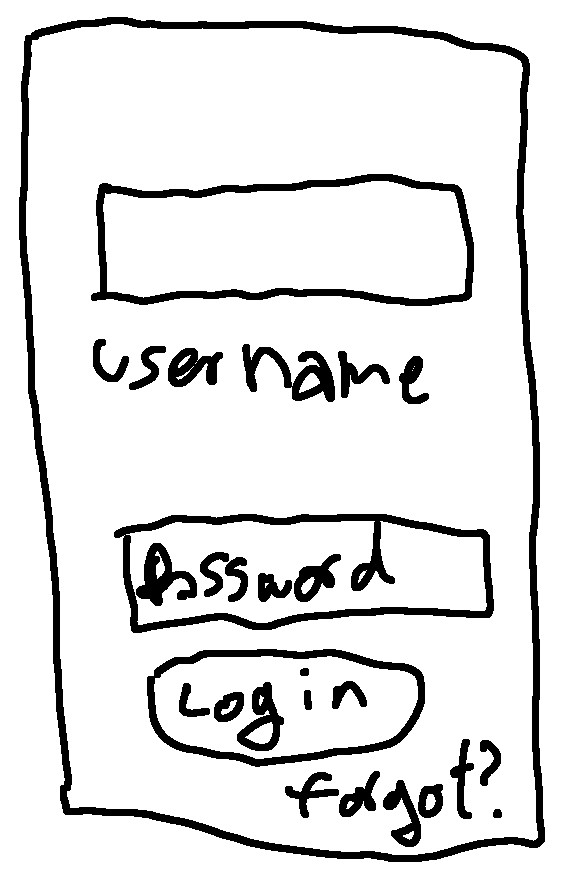 username
Password
Login
forgot?